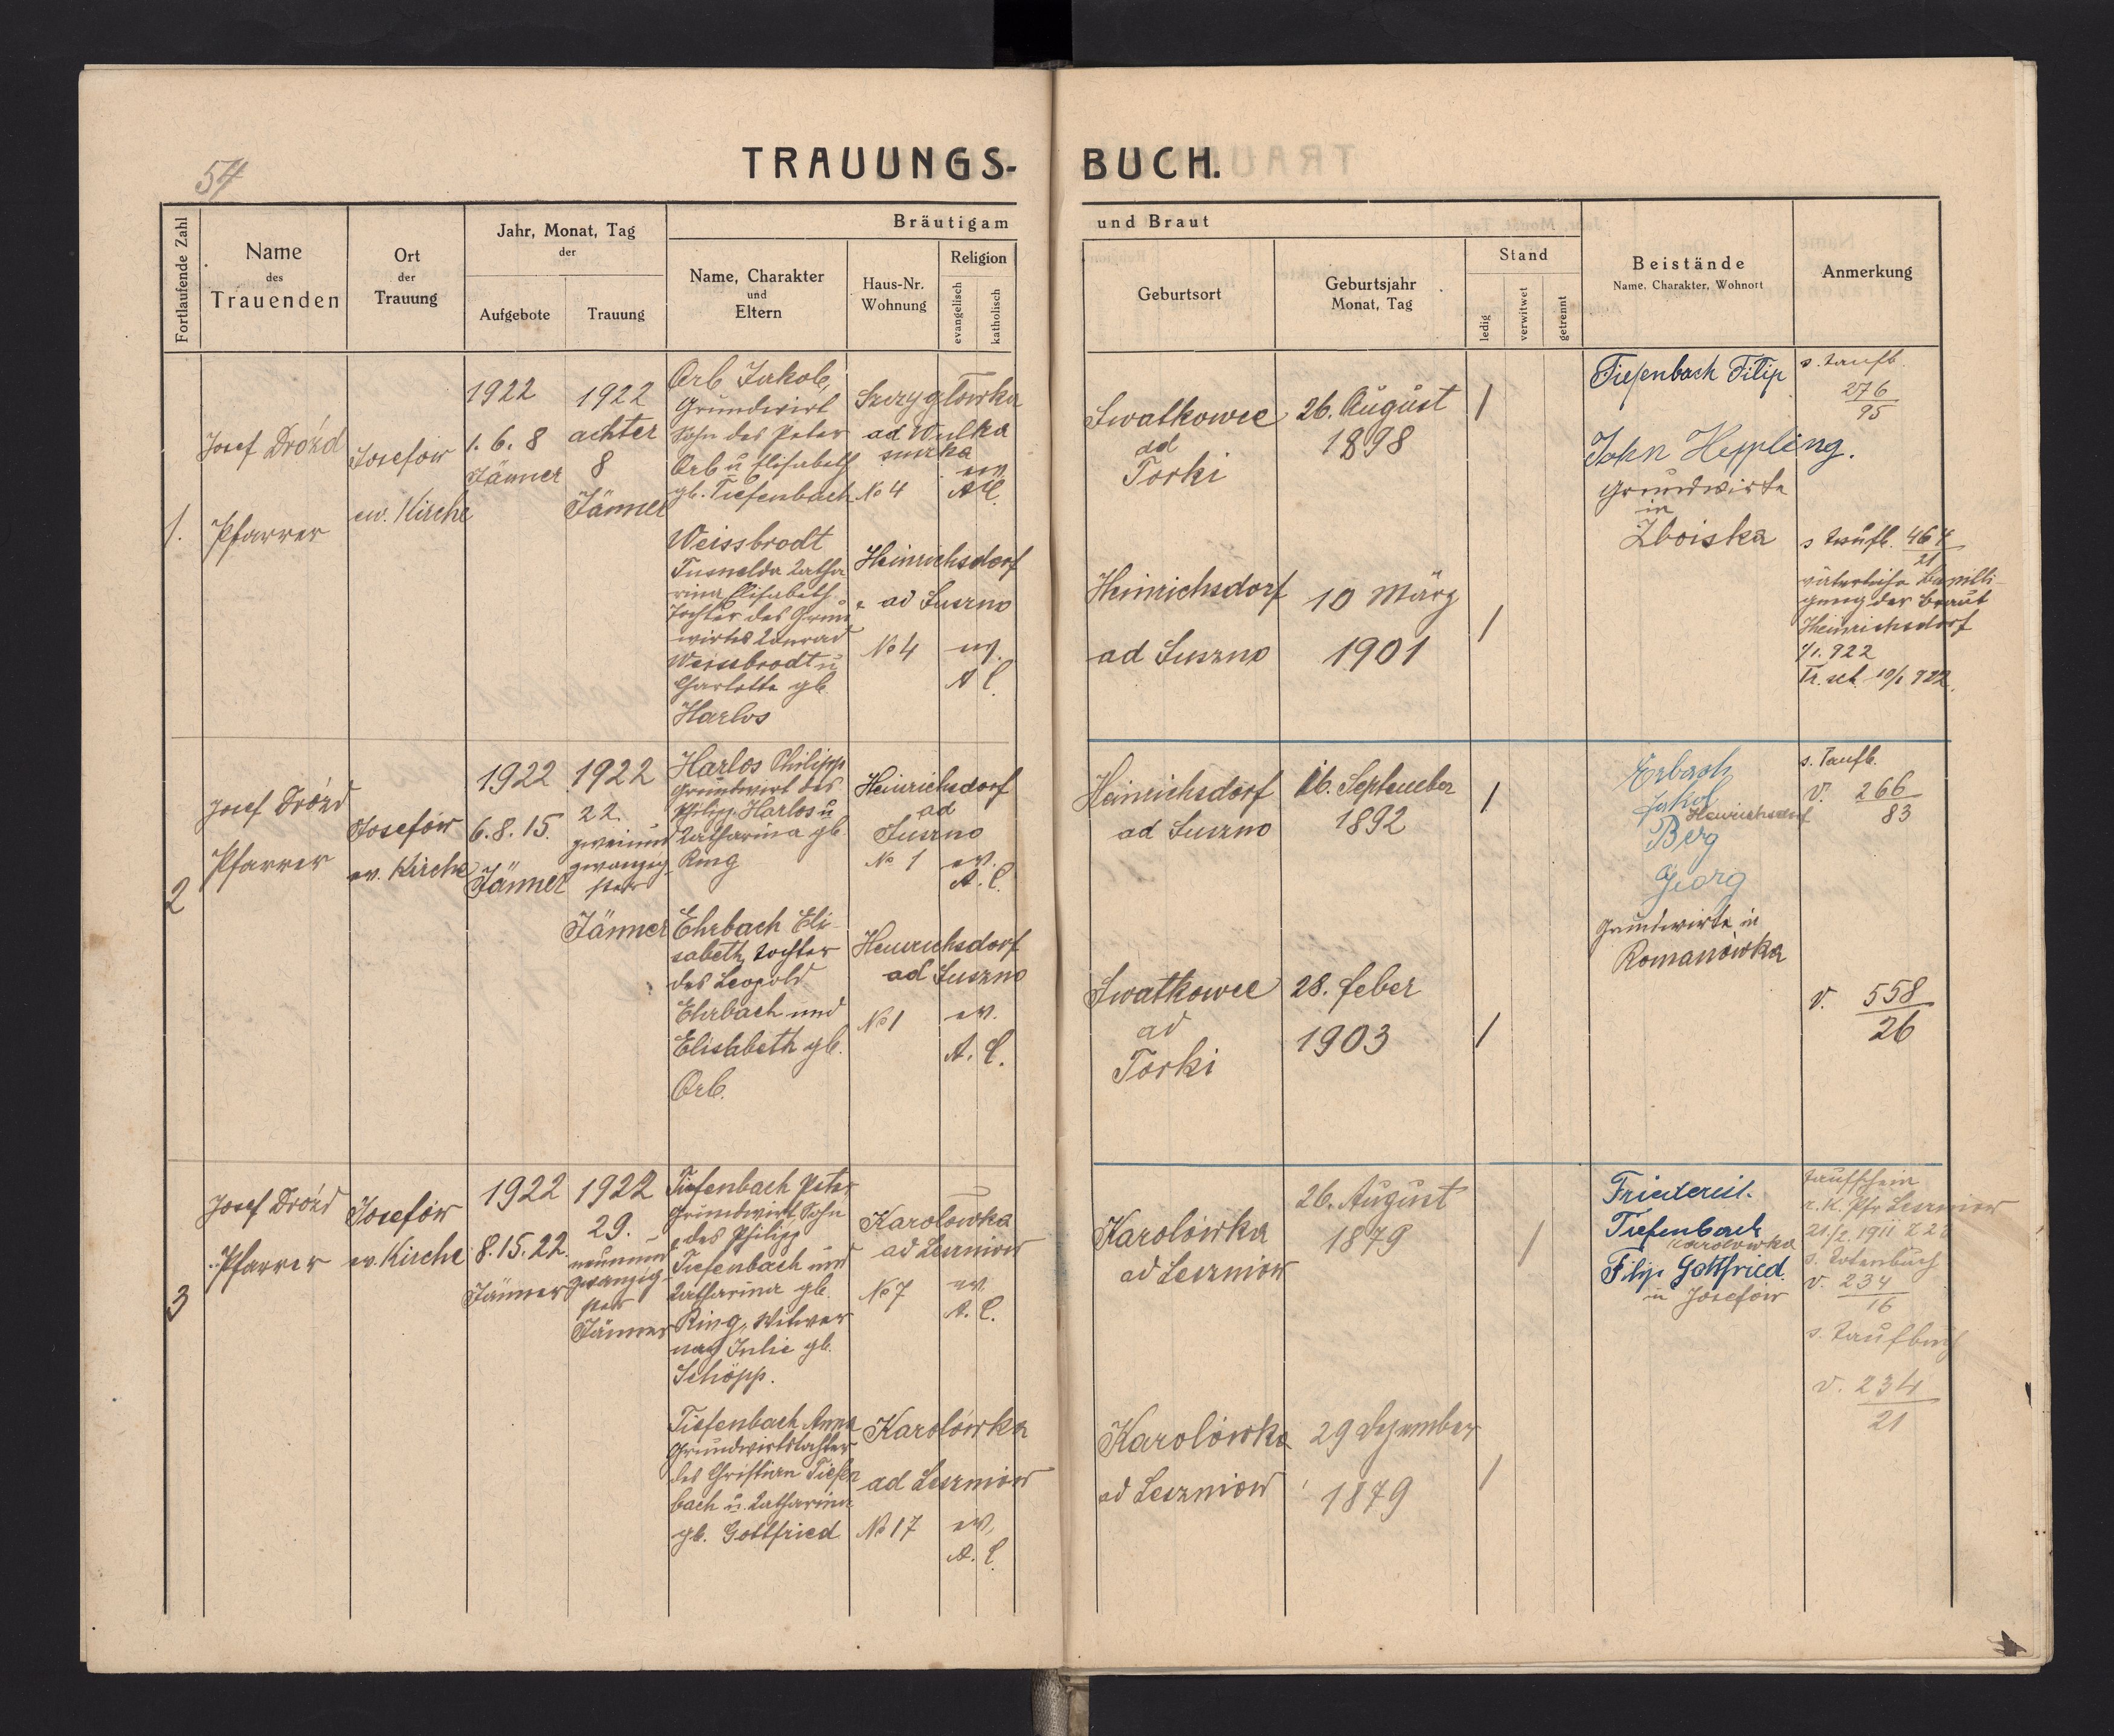 54
TRAUUNGS-BUCH.
Fortlaufende Zahl
Name
des
Trauenden
Ort
der
Trauung
Jahr, Monat, Tag
der
Aufgebote
Trauung
Bräutigam
und Braut
Name, Charakter
und
Eltern
Haus-Nr.
Wohnung
Religion
evangelisch
katholisch
Geburtsort
Geburtsjahr
Monat, Tag
Stand
ledig
verwitwet
getrennt
Beistände
Name, Charakter, Wohnort
Anmerkung
1.
Josef Drózd
Pfarrer
Josefów
ev. Kirche
1922
1. 6. 8
Jänner
1922
achter
8
Jänner
Orb Jakob,
Grundwirt
Sohn des Peter
Orb u Elisabeth
gb. Tiefenbach
Szczyglówka
ad Wulka
suszka
No 4
ev.
A C.
Swatkowce
ad
Torki
26. August
1898
/
Tiefenbach Filip
John Heppling.
Grundwirte
in
Zboiska
s. Taufb.
276
95
Weissbrodt
Tusnelda Katha
rina Elisabeth
Tochter des Grund
wirtes Konrad
Weissbrodt u
Charlotte gb.
Harlos
Heinrichsdorf
ad Suszno
No 4
ev.
A C.
Heinrichsdorf
ad Suszno
10 März
1901
/
s Taufb. 464
21
väterliche Bewilli-
gung der Braut
Heinrichsdorf
7/1. 922
Tr. sch. 10/1 922.
2
Josef Drózd
Pfarrer
Josefów
ev. Kirche
1922
6. 8. 15.
Jänner
1922
22.
zweiund
zwanzig-
ster
Jänner
Harlos Philipp
Grundwirt des
Philipp Harlos u
Katharina gb.
Ring
Heinrichsdorf
ad
Suszno
No 1
ev.
A. C.
Heinrichsdorf
ad Suszno
16. September
1892
/
Erbach
Jakob
Heinrichsdorf
Berg
Georg
Grundwirte in
Romanówka
s. Taufb.
V. 266
83
Ehrbach Eli-
sabeth, Tochter
des Leopold
Ehrbach und
Elisabeth gb.
Orb.
Heinrichsdorf
ad Suszno
No 1
ev.
A. C.
Swatkowce
ad
Torki
28. Feber
1903
/
V. 558
26
3
Josef Drózd
Pfarrer
Josefów
ev. Kirche
1922
8. 15. 22.
Jänner
1922
29.
neunund
zwanzig-
ster
Jänner
Tiefenbach Peter
Grundwirt, Sohn
des Philipp
Tiefenbach und
Katharina gb.
Ring, Witwer
nach Julie gb.
Schöpp.
Karolówka
ad Leszniow
No 7
ev.
A. C.
Karolówka
ad Leszniow
26. August
1879
/
Tiefenbach
Karolówka
Filip Gottfried
in Josefów
Taufschein
r. K. Pfr. Leszniow
s. Totenbuch
V. 234
16
s. Taufbuch
V. 234
21
Tiefenbach Anna
Grundwirtstochter
des Christian Tiefen
bach u. Katharina
gb. Gottfried
Karolówka
ad Leszniow
No 17
ev.
A. C.
Karolówka
ad Leszniow
29 Dezember
1879
/